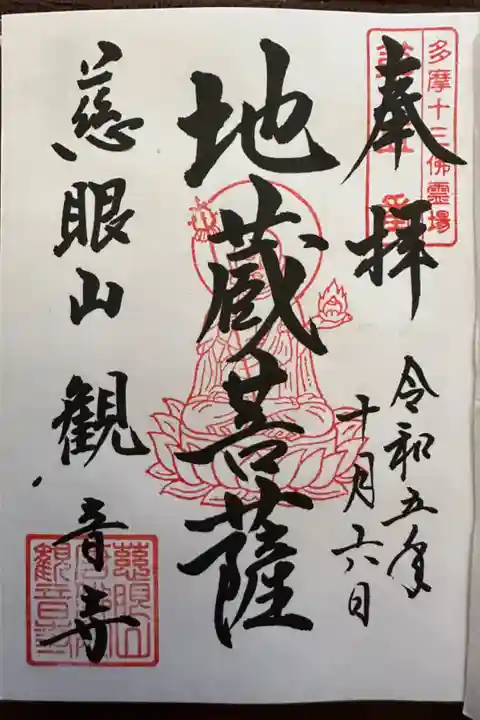 多摩十三佛霊場
奉拝
令和五年
十月六日
地蔵菩薩
慈眼山 観音寺
慈眼山
観音寺